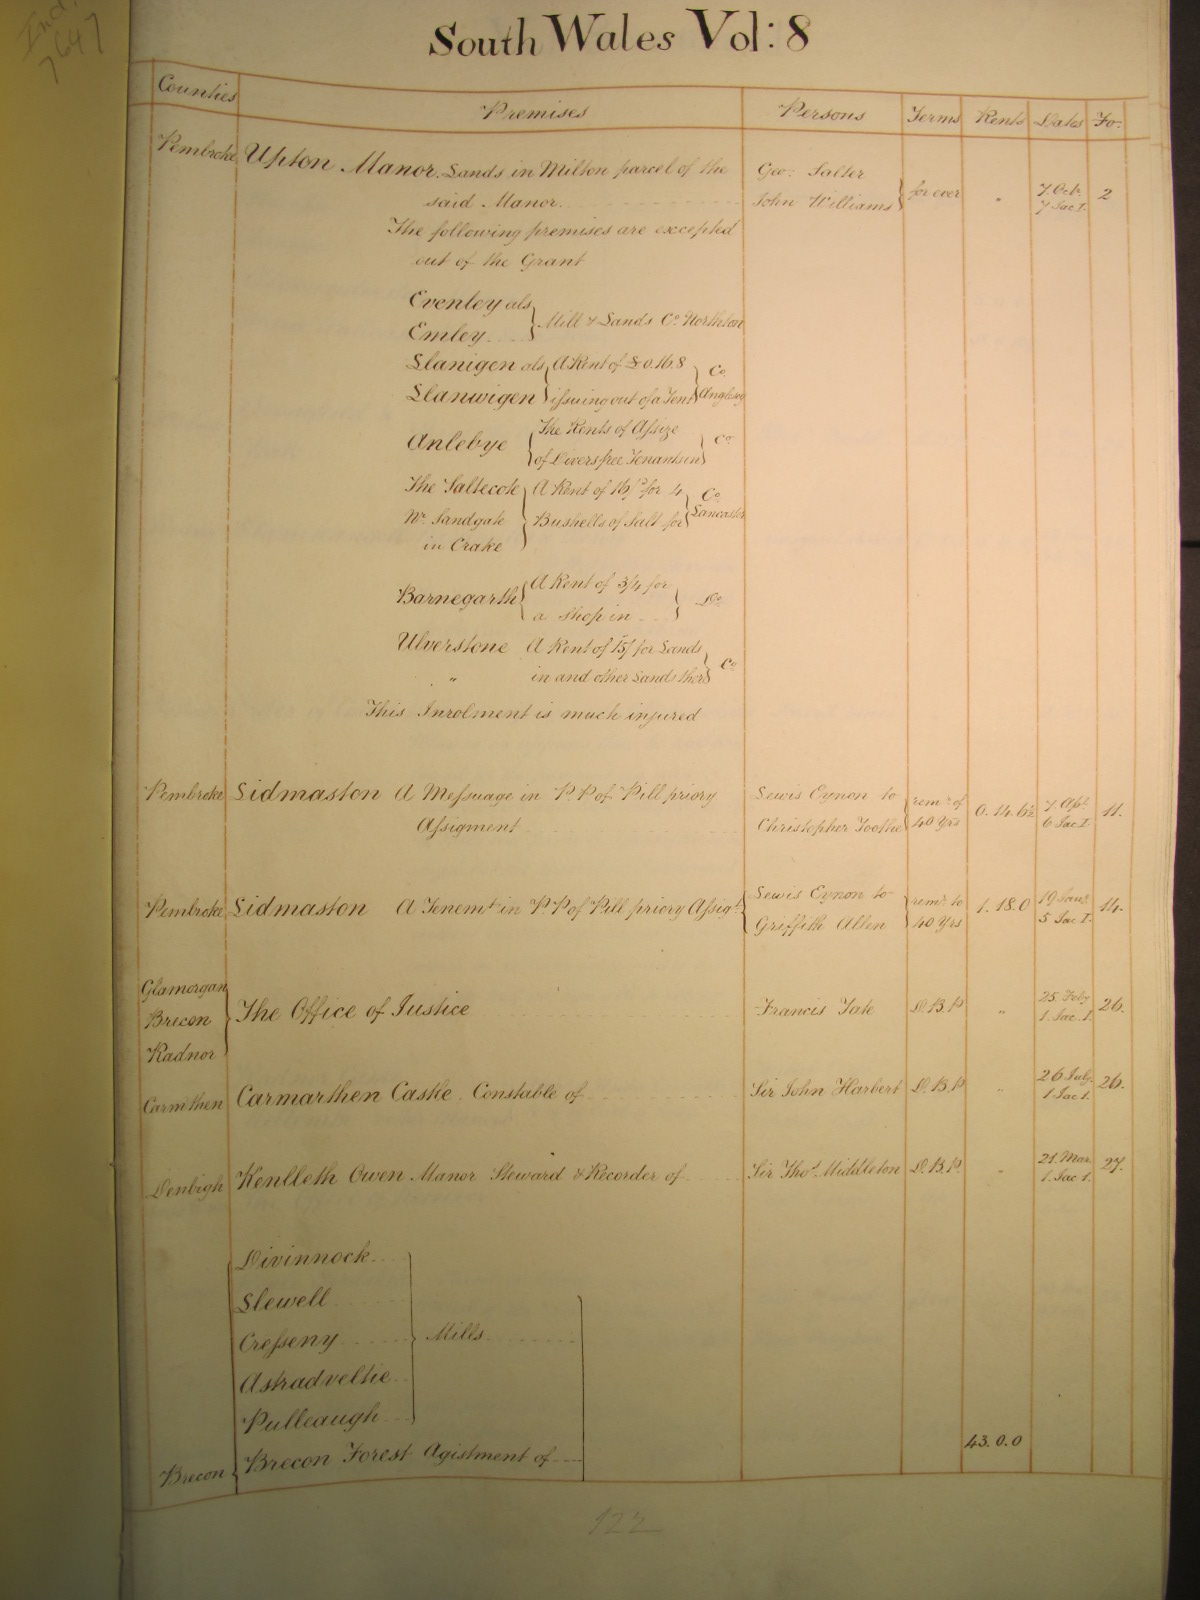 Ind. 7647
South Wales Vol: 8
Counties Premises Persons Terms Rents Dates Fo.
Pembroke Upton Manor Lands in Milton parcel of the said Manor
Geo: Salter
John Williams } for ever " 7. Octr. 7 Jac I. 2
The following premises are excepted
out of the Grant
Evenley als
Emley } Mill & Lands Co. Northton
Llanigen als
Llanwigen { A Rent of £0.16.8
issuing out of a Tent } Co. Anglesey
Anlebye { The Rents of Assize
of Divers free Tenants in } Co.
The Saltecote
Nr. Sandgate
in Crake } A Rent of 16/ for 4
Bushells of Salt for } Co. Lancaster
Barnegarth { A Rent of 3/4 for
a Shop in } Do.
Ulverstone A Rent of 15/ for Lands
" in and other Lands there } Co.
This Inrolment is much injured
Pembroke Lidmaston A Messuage in P.P of Pill priory
Assigment
Lewis Eynon to
Christopher Toothe } remr. of
40 Yrs 0.14.6½ 7. Apl. 6 Jac I. 11.
Pembroke Lidmaston A Tenemt. in P.P of Pill priory Assigt.
{ Lewis Eynon to
Griffith Allen } remr. to
40 Yrs 1.18.0 19 Jany. 5 Jac I. 14.
Glamorgan
Brecon
Radnor } The Office of Justice Francis Tate D.B.P " 25. Feby 1. Jac. I. 26.
Carmthen Carmarthen Castle. Constable of Sir John Harbert D.B.P " 26 July. 1 Jac 1. 26.
Denbigh Kenlleth Owen Manor Steward & Recorder of Sir Thos. Middleton D.B.P. " 21. Mar. 1. Jac 1. 27.
Divinnock
Llewell
Cresseny
Astradveltie
Pulleaugh } Mills
Brecon { Brecon Forest Agistment of 43.0.0
122